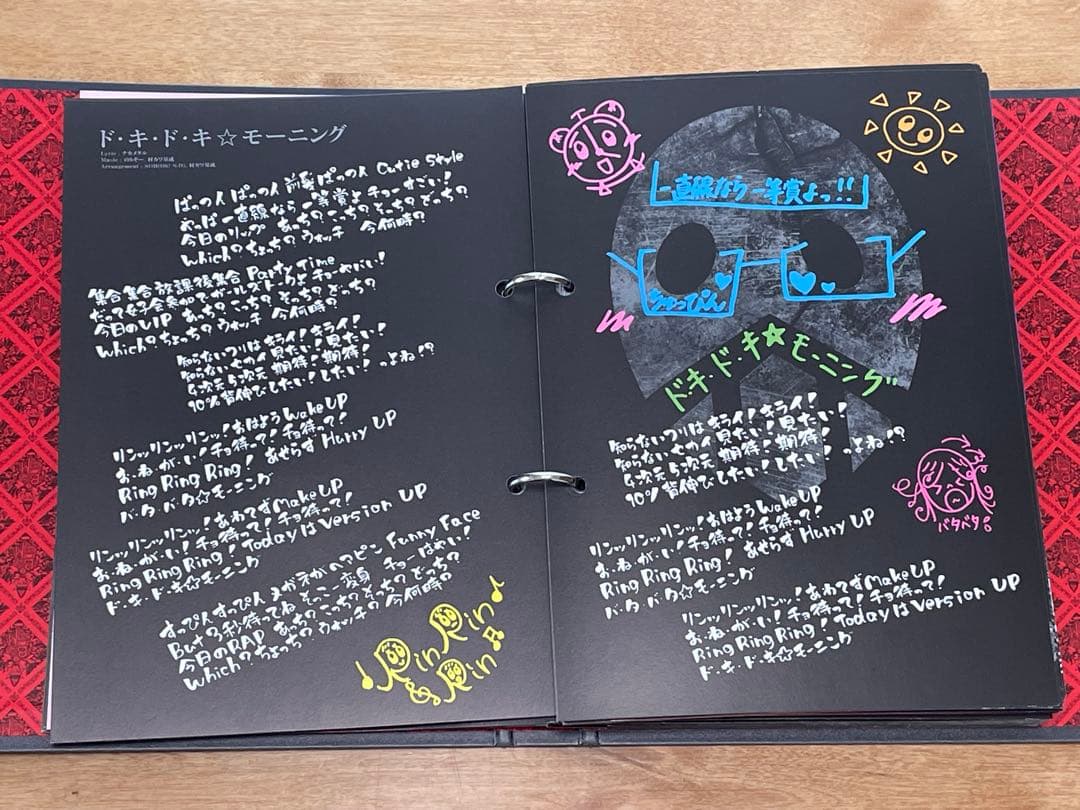 ド・キ・ド・キ☆モーニング
Lyric : ナカメタル
Music : のるぞー, 村カワ基成
Arrangement : 村カワ基成
ぱっつん ぱっつん 前髪ぱっつん Cutie Style
おっは 一直線なら 一等賞よ チョーすごい!
今日のリップ あっち? こっち? そっち? どっち?
Which? ちょっち? ウォッチ 今何時?
集合 集合 放課後集合 Party Time
だって女子会参加でガールズトーク チョーやばい!
今日のVIP あっち? こっち? そっち? どっち?
Which? ちょっち? ウォッチ 今何時?
知らないフリは キライ! キライ!
知らないセカイ 見たい! 見たい!
4次元5次元 期待! 期待!
90%背伸びしたい! したい! っよね!?
リンリンッリンッ! おはよう Wake UP
お・ね・が・い! チョ待って! チョ待って!
Ring Ring Ring! あせらず Hurry UP
バ・タ・バ・タ☆モーニング
リンリンッリンッ! あわてず Make UP
お・ね・が・い! チョ待って! チョ待って!
Ring Ring Ring! Todayは Version UP
ド・キ・ド・キ☆モーニング
すっぴん すっぴん まがえがへアピン Funny Face
But? 3秒待ってね そこー変身 チョーはやい!
今日のRAP あっち? こっち? そっち? どっち?
Which? ちょっち? ウォッチの 今何時?
Rin Rin
Rin
一直線なら一等賞よっ!!
ちゅっぴん
ド・キ・ド・キ☆モーニング
知らないフリは キライ! キライ!
知らないセカイ 見たい! 見たい!
4次元5次元 期待! 期待!
90%背伸びしたい! したい! っよね!?
バタバタ
リンリンッリンッ! おはよう Wake UP
お・ね・が・い! チョ待って! チョ待って!
Ring Ring Ring! あせらず Hurry UP
バ・タ・バ・タ☆モーニング
リンリンッリンッ! あわてず Make UP
お・ね・が・い! チョ待って! チョ待って!
Ring Ring Ring! Todayは Version UP
ド・キ・ド・キ☆モーニング